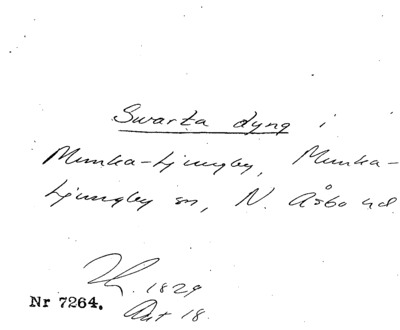 Svarta dyng i
Munka-Ljungby, Munka-
Ljungby sn, N. Åsbo hd.
1829
Nr 7264. Akt 18